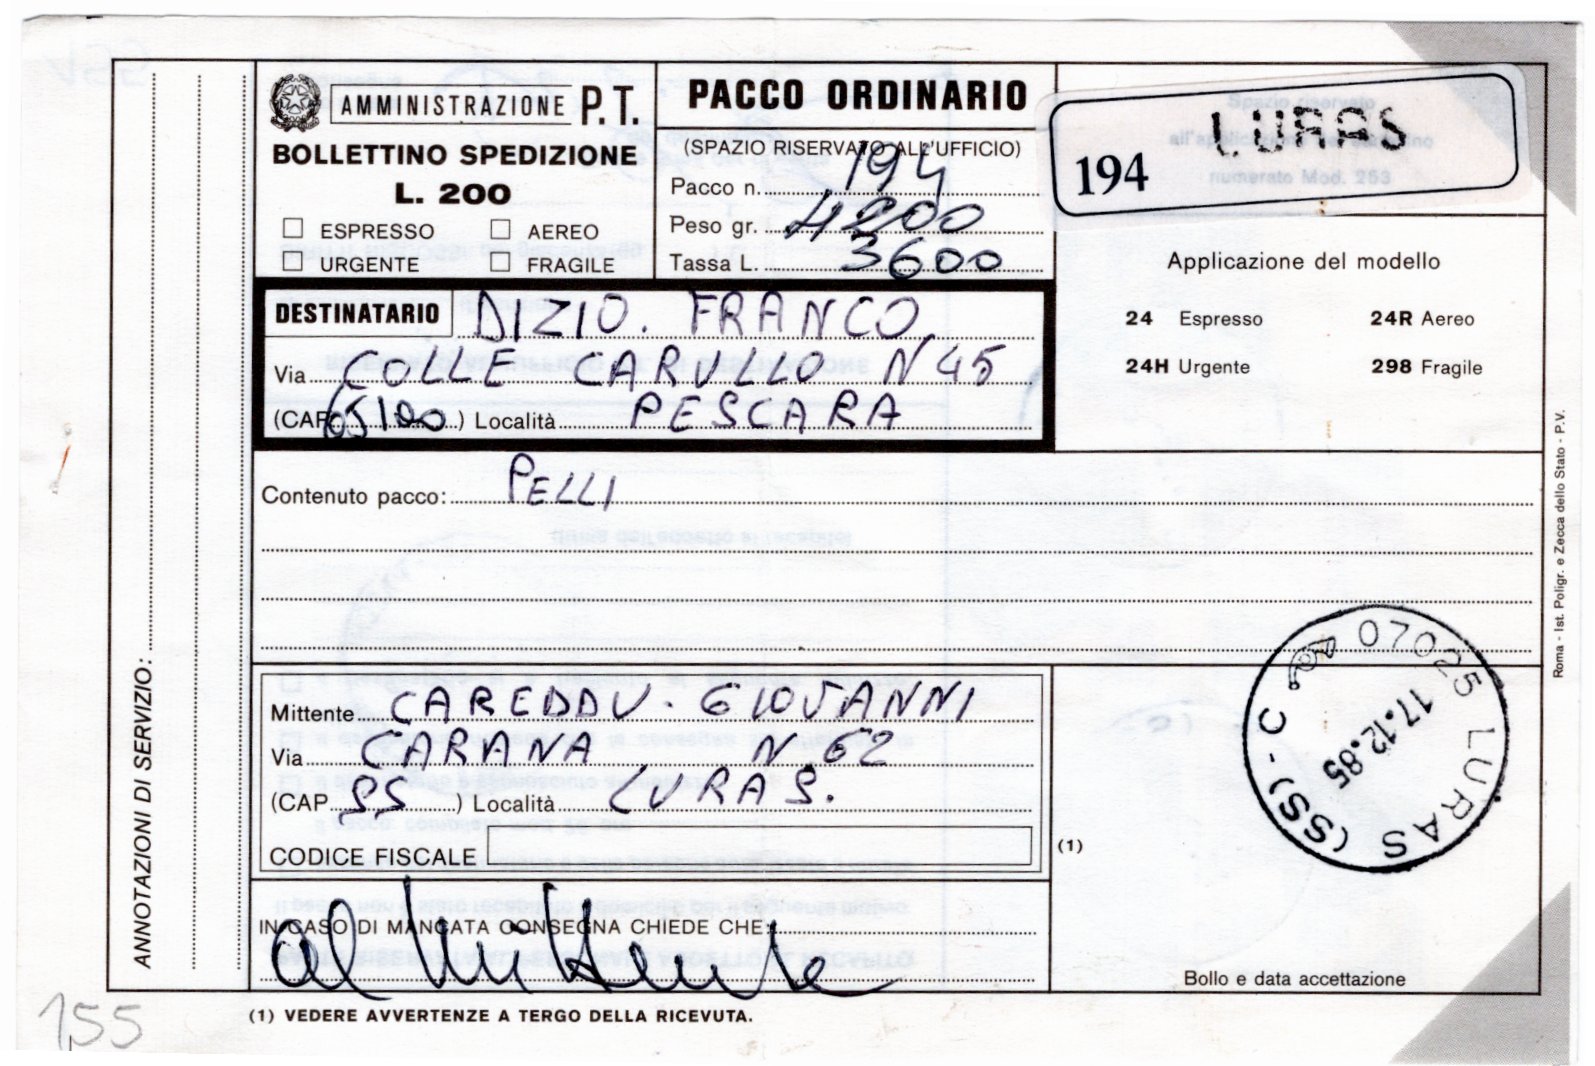 AMMINISTRAZIONE P.T.
BOLLETTINO SPEDIZIONE
L. 200
ESPRESSO AEREO
URGENTE FRAGILE
PACCO ORDINARIO
(SPAZIO RISERVATO ALL'UFFICIO)
Pacco n. 194
Peso gr. 4200
Tassa L. 3600
194 LURAS
Spazio riservato
numerato Mod. 253
Applicazione del modello
24 Espresso 24R Aereo
24H Urgente 298 Fragile
DESTINATARIO DIZIO. FRANCO
Via COLLE CARULLO N 45
(CAP 65100) Località PESCARA
Contenuto pacco: PELLI
Mittente CAREDDU. GIOVANNI
Via CARANA N 62
(CAP SS) Località LURAS.
CODICE FISCALE
(1)
IN CASO DI MANCATA CONSEGNA CHIEDE CHE:
al Mittente
07025 LURAS (SS) - C
17.12.85
Bollo e data accettazione
(1) VEDERE AVVERTENZE A TERGO DELLA RICEVUTA.
ANNOTAZIONI DI SERVIZIO:
Roma - Ist. Poligr. e Zecca dello Stato - P.V.
155